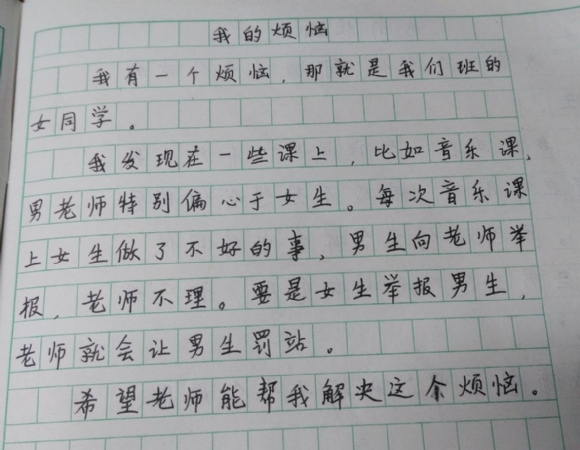 我的烦恼
我有一个烦恼，那就是我们班的
女同学。
我发现在一些课上，比如音乐课，
男老师特别偏心于女生。每次音乐课
上女生做了不好的事，男生向老师举
报，老师不理。要是女生举报男生，
老师就会让男生罚站。
希望老师能帮我解决这个烦恼。